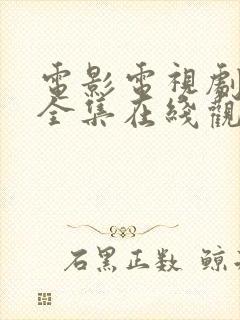 電影電視劇
全集在綫觀
石黑正数 鲸